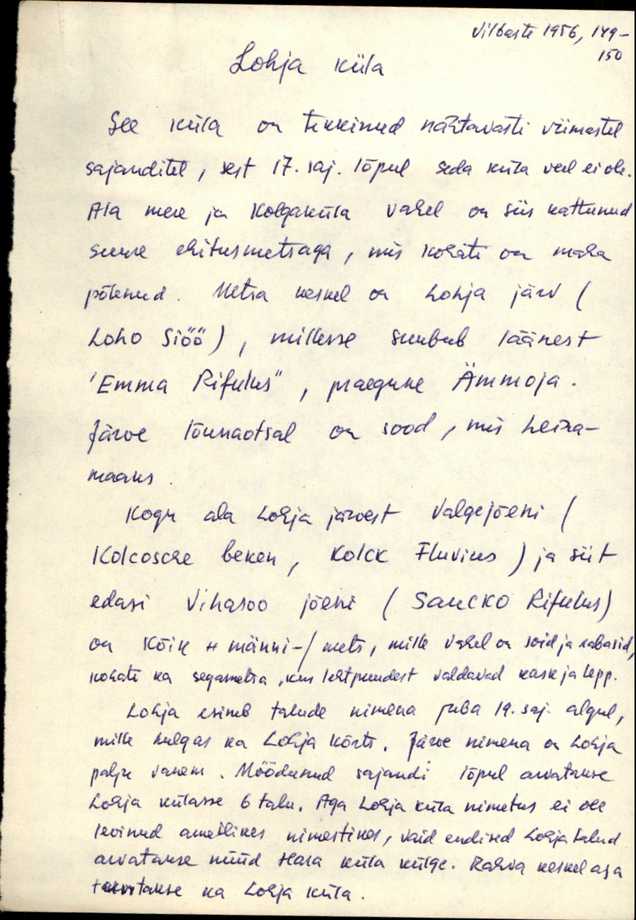 Vilbaste 1956, 149-
150
Lohja küla
See küla on tekkinud nähtavasti viimastel
sajanditel, sest 17. saj. lõpul seda küla veel ei ole.
Ala mere ja Kolgaküla vahel on siis kattunud
suure ehitusmetsaga, mis kohati on maha
põlenud. Metsa keskel on Lohja järv (
Loho Siöö), millesse suubub läänest
"Emma Rifulus", praegune Ämmoja.
Järve lõunaotsal on sood, mis heina-
maaks.
Kogu ala Lohja järvest Valgejõeni (
Kolcosche beken, Kolck Fluvius) ja siit
edasi Vihasoo jõeni (Saucko Rifulus)
on kõik männi- / mets, mille vahel on soid ja rabasid,
kohati ka segametsa, kus lehtpuudest valdavad kask ja lepp.
Lohja esineb talude nimena juba 19. saj. algul,
mille hulgas ka Lohja kõrts. Järve nimena on Lohja
palju vanem. Möödunud sajandi lõpul arvatakse
Lohja külasse 6 talu. Aga Lohja küla nimetus ei ole
levinud ametlikes nimestikes, vaid endised Lohja talud
arvatakse nüüd Hara küla külge. Rahva keskel aga
tarvitakse ka Lohja küla.